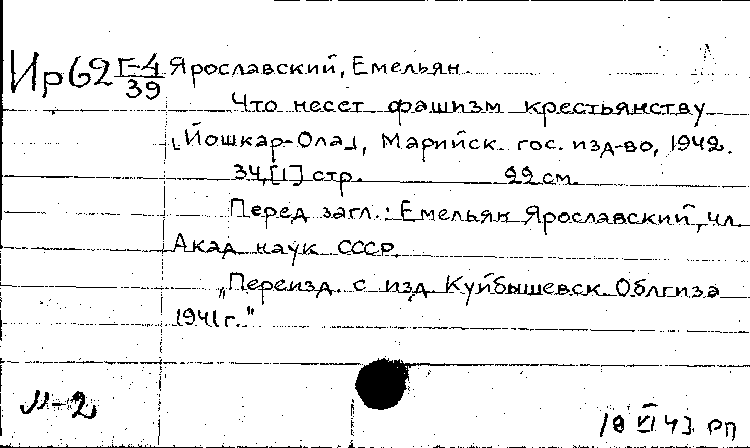 Ир62 Г-4/39
Ярославский, Емельян.
Что несет фашизм крестьянству
[Йошкар-Ола], Марийск. гос. изд-во, 1942.
34,[1] стр. 22 см.
Перед загл.: Емельян Ярославский, чл.
Акад. наук СССР.
„Переизд. с изд. Куйбышевск. Облгиза
1941 г."
М-2
VI 43 рп